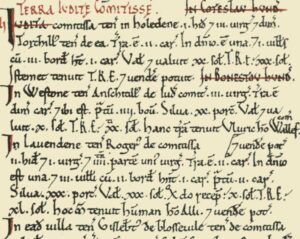 TERRA IVDITE COMITISSE. IN COTESLAV HVND.
Judita comitissa ten in holedene .i. hid 7 iii. virg 7 dim.
Torchill ten de ea. Tra. ē .ii. car. In dnio ē una 7 i. uills
cū .iii. bord hnt .i. car. Vat 7 ualuit .xx. sol. T.R.E. xxx. sol.
7 uende potuit. IN BONESTOV HVND.
In Westone ten Anschetill de com
car. 7 ibi est. ptū .iiii. bou. Silua .xx. porc. Val 7 ua
luit .xx. sol. T.R.E. xxx. sol. hanc tra tenuit
In Lauuendene ten Roger de comitissa 7 uende pot.
.ii. hid 7 .i. virg 7 iiii. parte uni virg. Tra. ē .ii. car. In dnio
est una 7 iii. uilli cū .ii. bord hnt .i. car. ptū .ii. car.
Silua .xxx. porc. Val xxx. sol. X do recep .x. sol. T.R.E.
xl. sol. hoc m tenuit human hō Alli. 7 uende pot.
In ead uilla ten Gislebt de blosseuile ten de comitissa